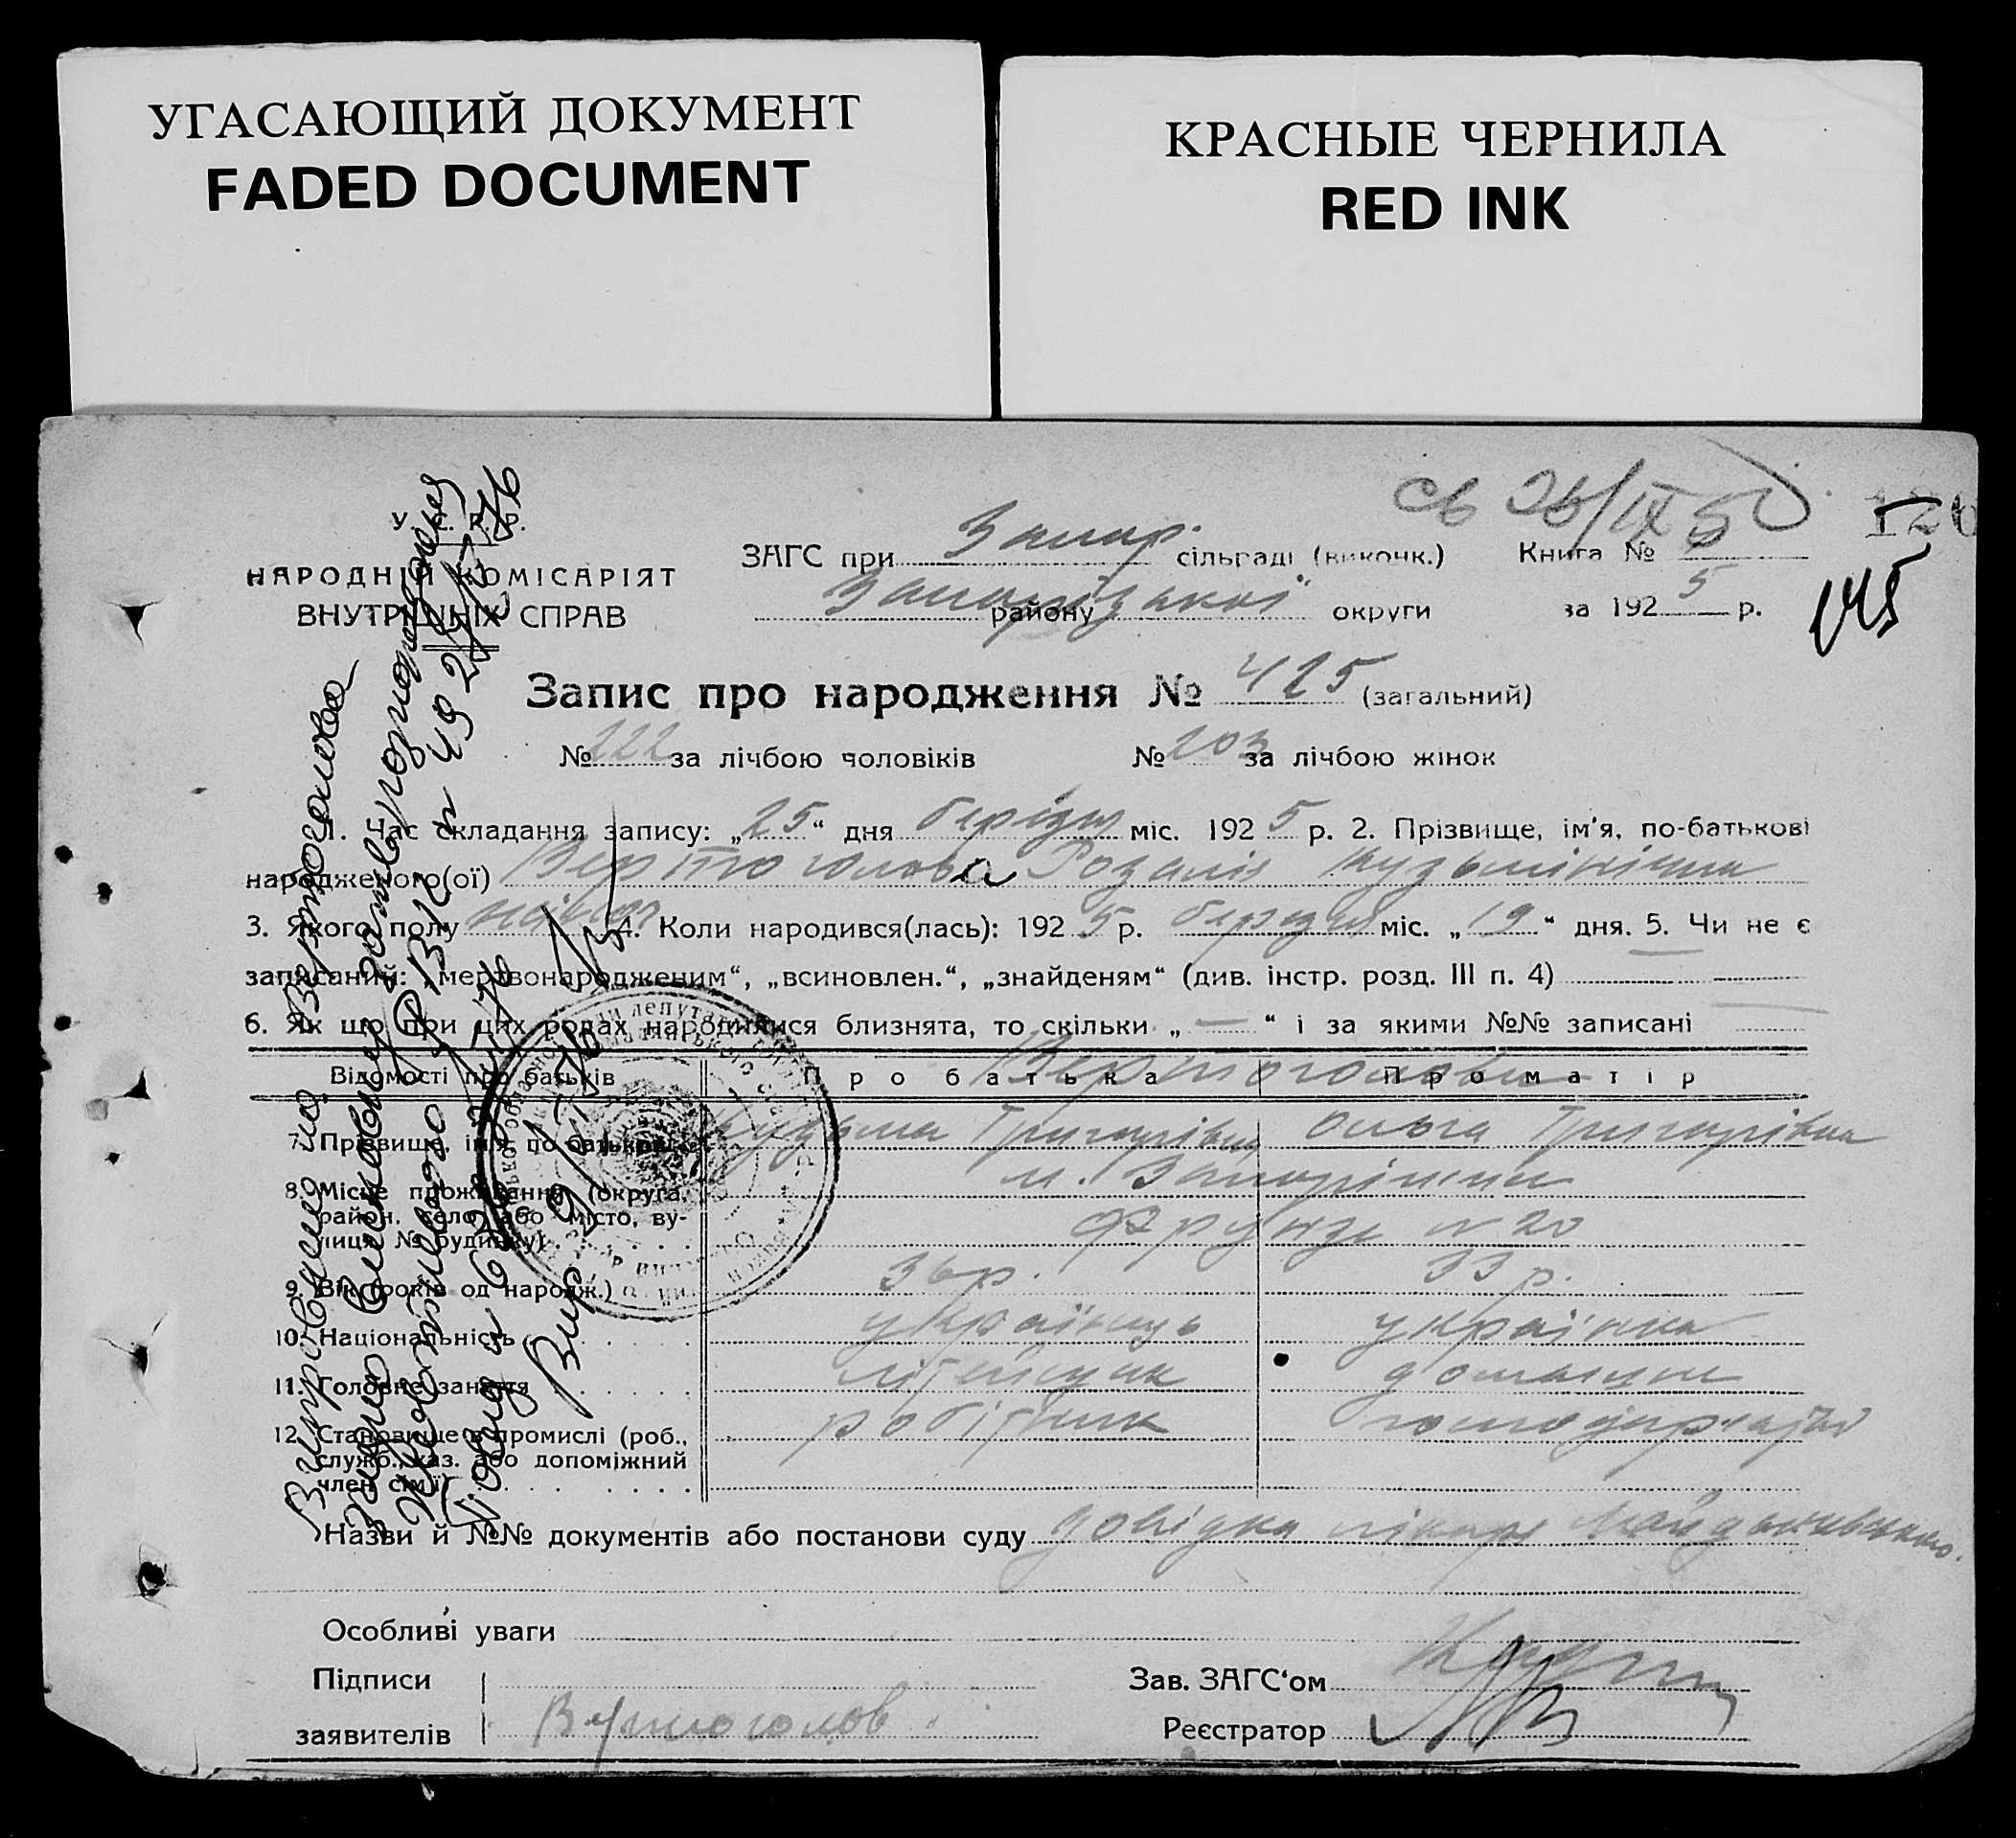 УГАСАЮЩИЙ ДОКУМЕНТ
FADED DOCUMENT
КРАСНЫЕ ЧЕРНИЛА
RED INK
св 26/IX 5
126
145
У. С. Р. Р.
НАРОДНІЙ КОМІСАРІЯТ
ВНУТРІШНІХ СПРАВ
ЗАГС при Запор. сільраді (виконк.) Книга №
району Запорізької округи за 192 5 р.
Запис про народження № 425 (загальний)
№ 222 за лічбою чоловіків № 203 за лічбою жінок
1. Час складання запису: „25“ дня березня міс. 192 5 р. 2. Прізвище, ім'я, по-батькові
народженого(ої) Вертоголова Розалія Кузьмінічна
3. Якого полу жіноч 4. Коли народився(лась): 192 5 р. березня міс. „19“ дня. 5. Чи не є
записаний: „мертвонародженим“, „всиновлен.“, „знайденям“ (див. інстр. розд. III п. 4)
6. Як що при цих родах народилися близнята, то скільки „—“ і за якими №№ записані
Вертоголови
Відомості про батьків Про батька Про матір
7. Прізвище, ім'я, по батькові Кузьма Григорівич Ольга Григорівна
8. Місце проживання (округа, м. Запоріжжя
район, село або місто, ву-
лиця № будинку) Фрунзе № 20
9. Вік (років од народж.) 36 р. 33 р.
10. Національність українець українка
11. Головне заняття домашнє
12. Становище в промислі (роб., робітник господарство
служб., хаз. або допоміжний
член сім'ї)
Назви й №№ документів або постанови суду довідка лікаря
Особливі уваги
Підписи Зав. ЗАГС'ом
заявителів Вертоголов Реєстратор
Виправлено на Вертоголова